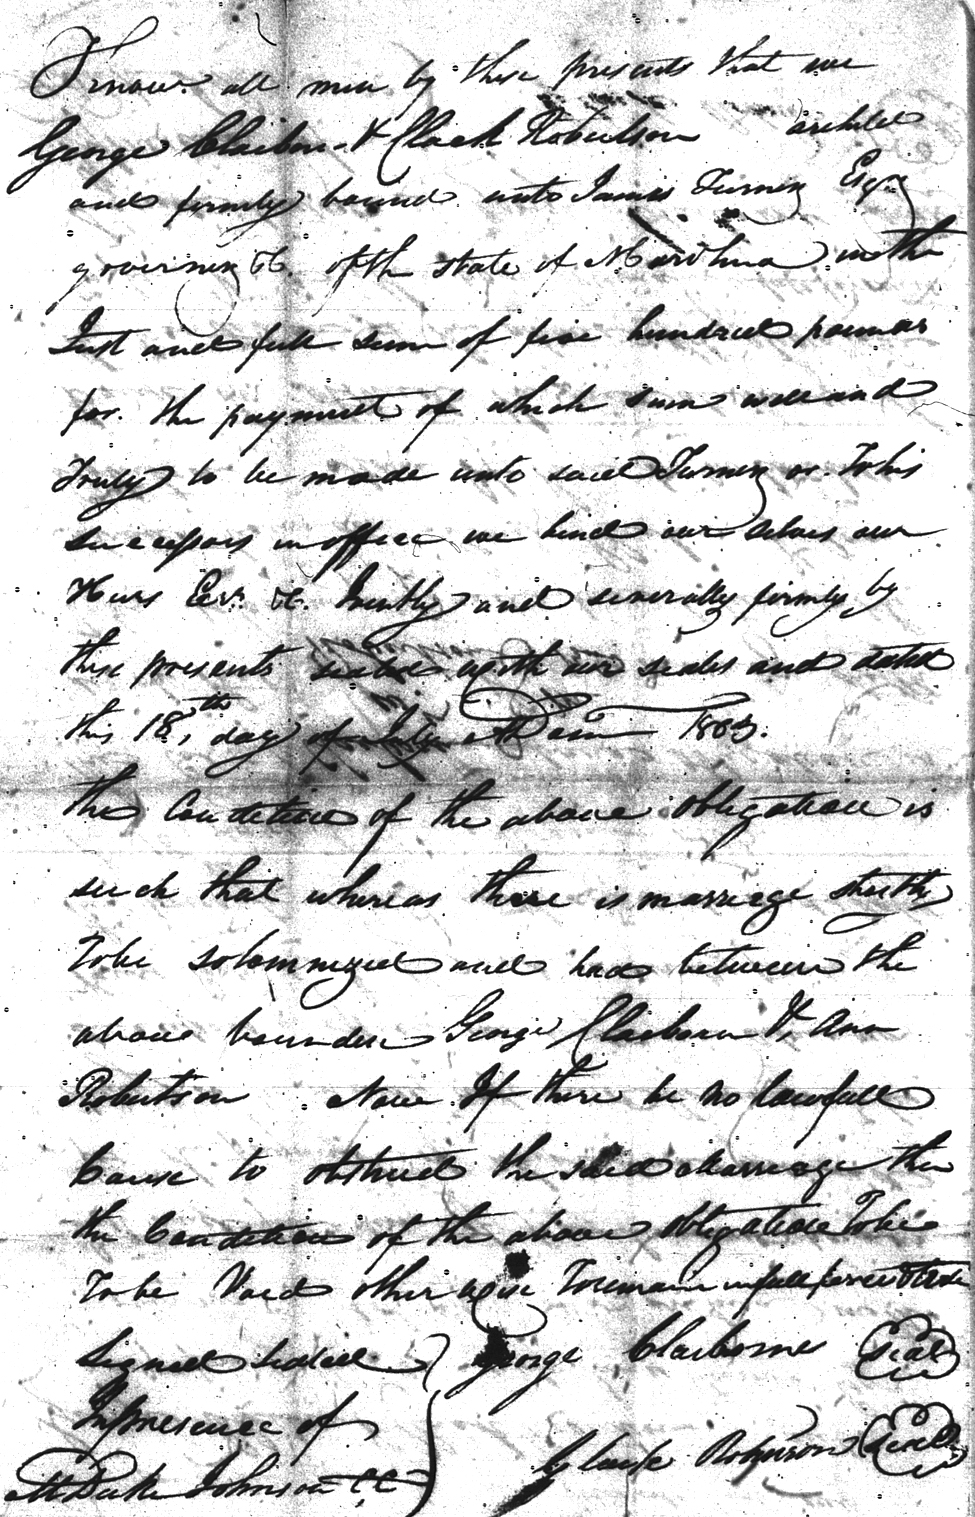 Know all men by these presents that we
George Claibon & Clack Robertson are held
and firmly bound unto James Turner Esqr
governer &C. of the state of N Carolina in the
Just and full sum of five hundred pounds
for the payment of which sum well and
Truly to be made unto said Turner or To his
successors in office we bind our selves our
Heirs Exr. &C. Jointly and severally firmly by
these presents sealed with our seals and dated
this 18th day of July Anno 1803.
the Condition of the above obligation is
such that whereas there is marriage shortly
To be solomnized and had between the
above bounden George Claiborn & Ann
Robertson Now If there be no lawfull
Cause to obstruct the said Marriage then
the Condition of the above obligation To be
To be Void otherwise To remain in full force &
Signed sealed George Claiborne Seal
In presence of
Clack Robinson Seal
M Duke Johnson CC